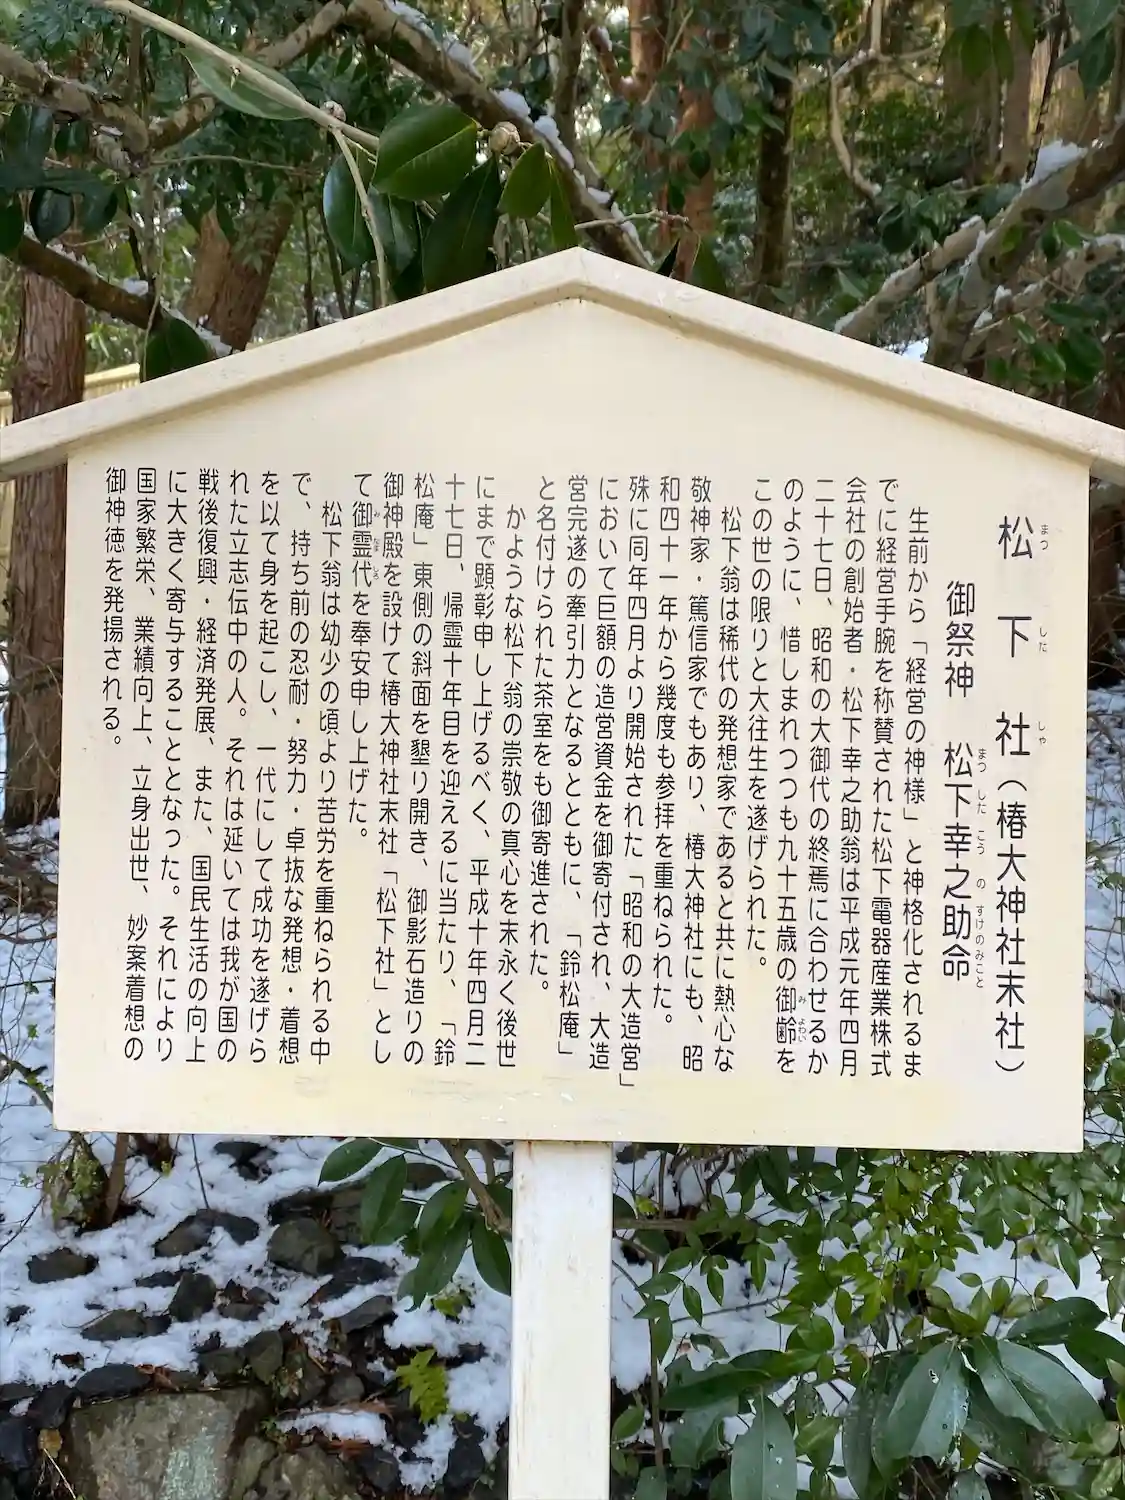 松下社（椿大神社末社）
まつ した しゃ
御祭神 松下幸之助命
まつ した こう の すけのみこと
生前から「経営の神様」と神格化されるま
でに経営手腕を称賛された松下電器産業株式
会社の創始者・松下幸之助翁は平成元年四月
二十七日、昭和の大御代の終焉に合わせるか
のように、惜しまれつつも九十五歳の御齢を
み よわい
この世の限りと大往生を遂げられた。
松下翁は稀代の発想家であると共に熱心な
敬神家・篤信家でもあり、椿大神社にも、昭
和四十一年から幾度も参拝を重ねられた。
殊に同年四月より開始された「昭和の大造営」
において巨額の造営資金を御寄付され、大造
営完遂の牽引力となるとともに、「鈴松庵」
と名付けられた茶室をも御寄進された。
かような松下翁の崇敬の真心を末永く後世
にまで顕彰申し上げるべく、平成十年四月二
十七日、帰霊十年目を迎えるに当たり、「鈴
松庵」東側の斜面を墾り開き、御影石造りの
御神殿を設けて椿大神社末社「松下社」とし
て御霊代を奉安申し上げた。
み たま しろ
松下翁は幼少の頃より苦労を重ねられる中
で、持ち前の忍耐・努力・卓抜な発想・着想
を以て身を起こし、一代にして成功を遂げら
れた立志伝中の人。それは延いては我が国の
戦後復興・経済発展、また、国民生活の向上
に大きく寄与することとなった。それにより
国家繁栄、業績向上、立身出世、妙案着想の
御神徳を発揚される。